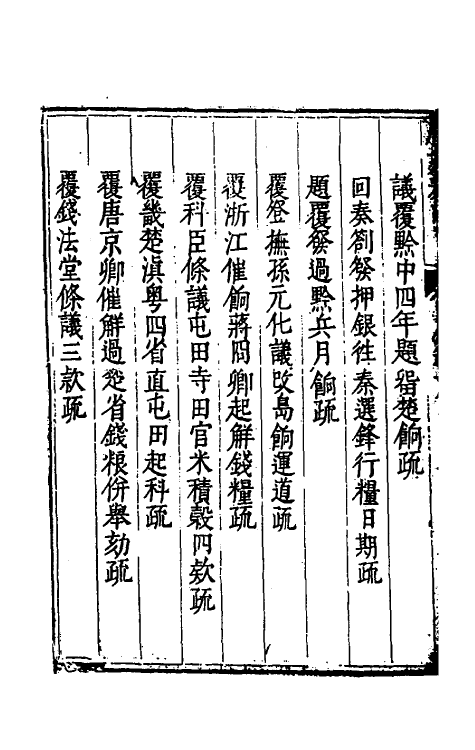 議覆黔中四年題留楚餉疏
回奏劄發押銀徃秦選鋒行糧日期疏
題覆發過黔兵月餉疏
覆登撫孫元化議改島餉運道疏
覆浙江催餉蔣冏卿起解錢糧疏
覆科臣條議屯田寺田官米積穀四欸疏
覆畿楚滇粤四省直屯田起科疏
覆唐京卿催解過楚省錢粮併舉劾疏
覆錢法堂條議三欵疏